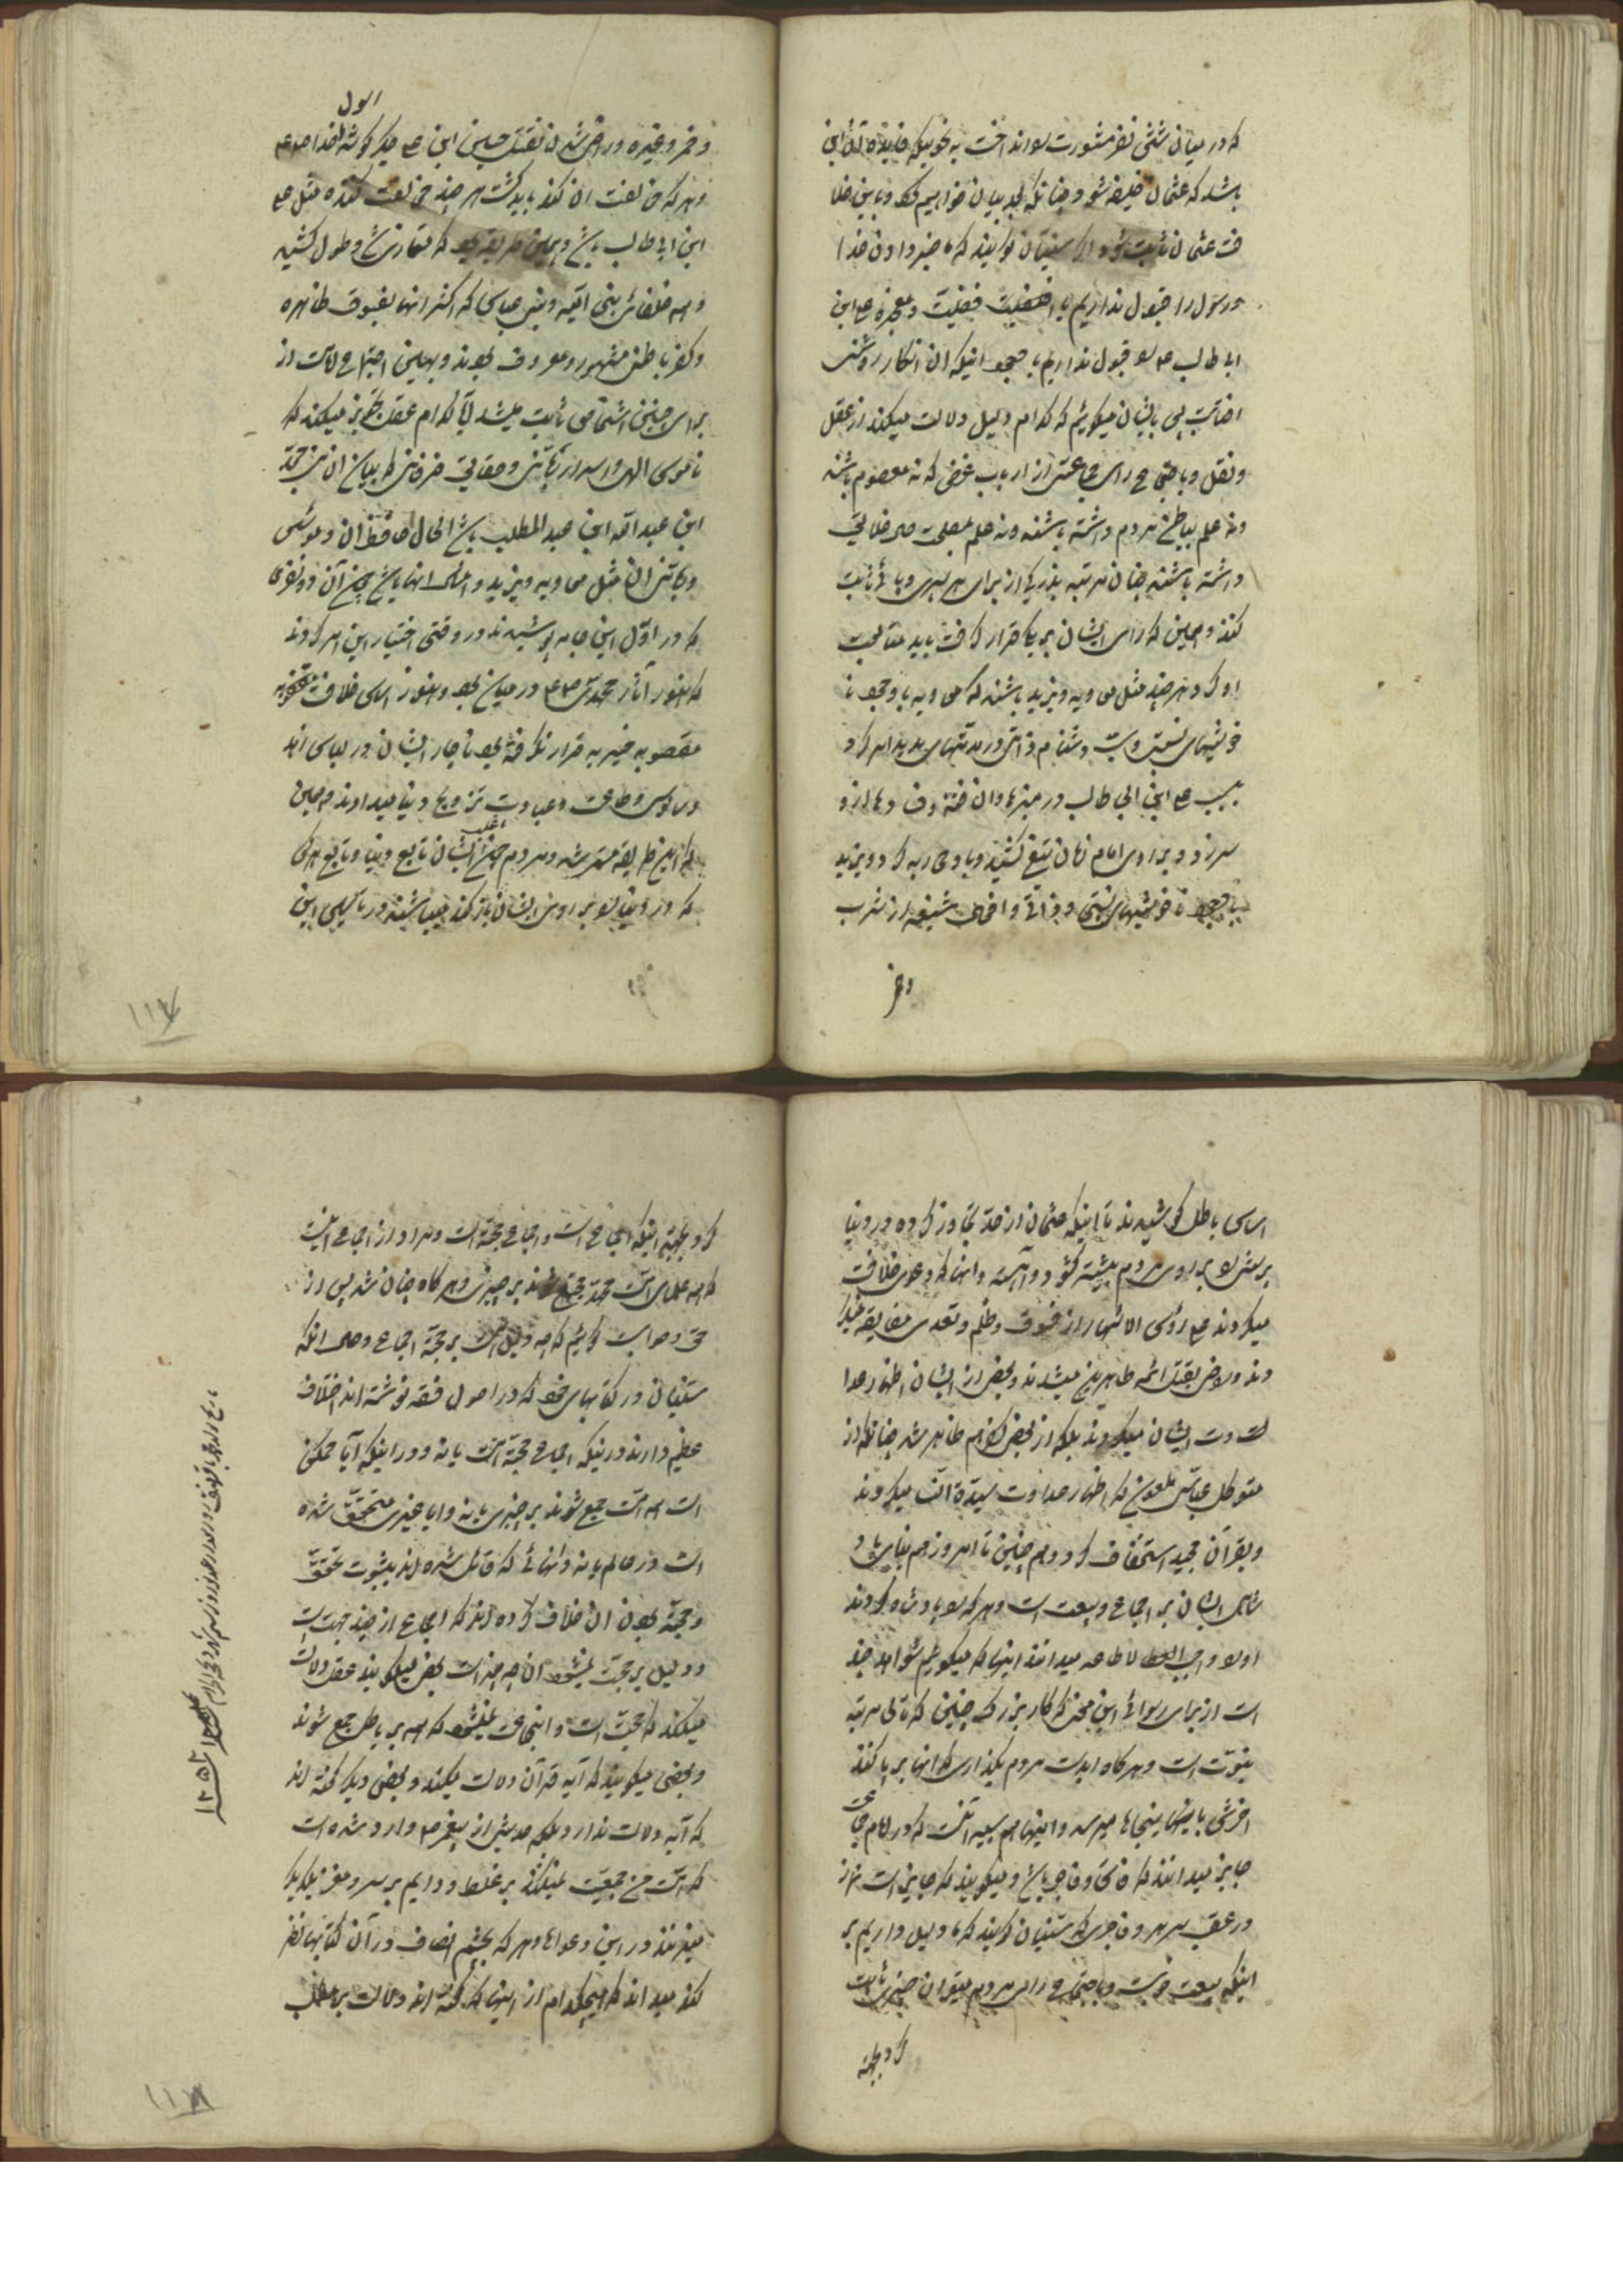 که در میان شش نفر مشورت بود انداخت به نحویکه فایده آن این
باشد که عثمان خلیفه شود چنانکه بعد بیان خواهیم کرد و باین خلا
فت عثمان ثابت شود اگر سنیان گویند که ما خبر دادن خدا
و رسول را قبول نداریم یا افضلیت فضیلت و معجزه علی ابن
ابی طالب ع را قبول نداریم با وجود اینکه ان انکار روشنی
افتابست پس بایشان میگوئیم که کدام دلیل دلالت میکند از عقل
و نقل و باجتماع رای جماعتی از ارباب غرض که نه معصوم باشند
و نه علم بباطن مردم داشته باشند و نه علم بمصلحت هر خلایق
داشته باشند چنان مرتبه بزرگی از برای هر بی سر و پائی ثابت
کنند و همین که رای ایشان بر یکی قرار گرفت باید متابعت
او کرد هر چند مثل معویه و یزید باشند که معویه با وجود نا
خوشیهای نسبتی و شتایم ذاتی در مدتهای مدید امر کرد
بسب علی ابن ابی طالب در منبرها و ان فتنه و فساد ها از او
سر زد و بر روی امام زمان تیغ کشید و با وی حرب کرد و یزید
با وجود ناخوشیهای نسبتی و ذاتی و افعال شنیعه از شرب
و خمر
الول
و خمر و غیره و راضی شدن بقتل حسین ابن علی جگر گوشه رسول خدا صلعم
و هر که مخالفت ان کند باید کشت هر چند مخالفت کننده مثل علی
ابن ابی طالب باشد و بهمین طریقه بود که تمادی شد و طول کشید
و همه خلفای بنی امیه و بنی عباس که اکثر انها بفسوق ظاهره
و کفر باطنی مشهور و معروف بودند و بهمین اجتماع لا است از
برای چنین اشخاص ثابت میشد آیا کدام عقل تجویز میکند که
ناموس الهی و اسرار ربانی و حقایق فرقانی که بیان ان نبی محمد
ابن عبدالله ابن عبدالمطلب باشد الحال حافظ ان و مونس
و کاتب ان مثل معویه و یزید و امثال انها باشند چون آن دو نفری
که در اول این جامه پوشیدند در وقتی اختیار این امر کردند
که هنوز آثار محمدی صلعم در میان بود و هنوز اساس خلافت
مغصوبه خیریه قرار نگرفته بود ناچار ایشان در لباس زهد
و سالوس و طاعت و عبادت ترویج دنیا میدادند و همین
که این طریقه مستمر شد و مردم چون اغلب ایشان تابع دنیا و تابع هر کسی
که در دنیا رو بروی ایشان باز کند میباشند در تاسیس این
۱۱۷
اساس باطل کوشیدند تا اینکه عثمان از حد تجاوز کرده در دنیا
پرستی رو بر روی مردم بیشتر گشود و البته و انها که دعوی خلافت
میکردند علی رؤس الاشهاد از فسوق و ظلم و تعدی مضایقه نمیکر
دند و راضی بقتل ائمه طاهرین میشدند و بعض از ایشان اظهار عدا
لت و ت ایشان میکردند بلکه از بعضی کفر هم ظاهر شد چنانکه از
متوکل عباسی ملعون که اظهار عداوت سیدة النسا میکردند
و بقرآن مجید استخفاف کرد و هم چنین تا امروز هم بنای پاد
شاهی ایشان بر اجماع و بیعت است و هر که را پادشاه کردند
او را واجب الاطاعه میدانند اینها که میگویم شواهد چند
است از برای رسوائی این سخن که کار بزرگ چنین که تالی مرتبه
نبوت است و هر کاه بدست مردم بگذاری که انها بر پا کنند
اخرش باینها اینجاها میرسد و اینها هم بسبب آنست که در امام جماعت
جایز میدانند که فاسق و فاجر باشد و میگویند که جایز است نماز
در عقب هر بر و فاجری که سنیان گویند که ما دلیل داریم بر
اینکه بیعت خوبست و باجتماع رای مردم میتوان چیزی ثابت
کرد بجهة
کرد بجهة اینکه اجماع است و اجماع حجة است و مراد از اجماع آنست
که همه علمای امت محمد مجتمع شوند بر چیزی و هر کاه چنان شد پس از
حق و صوابست گوئیم که چه دلیل است بر حجة اجماع و حال انکه
سنیان در کتابهای خود که در اصول فقه نوشته اند اختلاف
عظیم دارند در اینکه اجماع حجة است یا نه و در اینکه آیا ممکن
است همه امت جمع شوند بر چیزی یا نه و ایا چیزی متحقق شده
است در عالم یا نه و انهائی که قائل شده اند بثبوت تحقق
و حجة بودن ان خلاف کرده اند که اجماع از چند جهت است
و دلیل بر حجت میشود ان چه چیز است بعضی میگویند عقل دلالت
میکند که حجت است و این جماعت نمیشود که همه بر باطل جمع شوند
و بعضی میگویند که آیه قرآن دلالت میکند و بعضی دیگر گفته اند
که آیه دلالت ندارد بلکه حدیثی از پیغمبر ص وارد شده است
که امت من جمعیت نمیکنند بر غلط و دایم بر سر و مغز یکدیگر
میزنند در این دعواها و هر که بچشم انصاف در آن کتابها نظر
کند میداند که هیچکدام از اینها که گفته اند دلالت بر مطلب
۱۲۵۱
۱۱۸